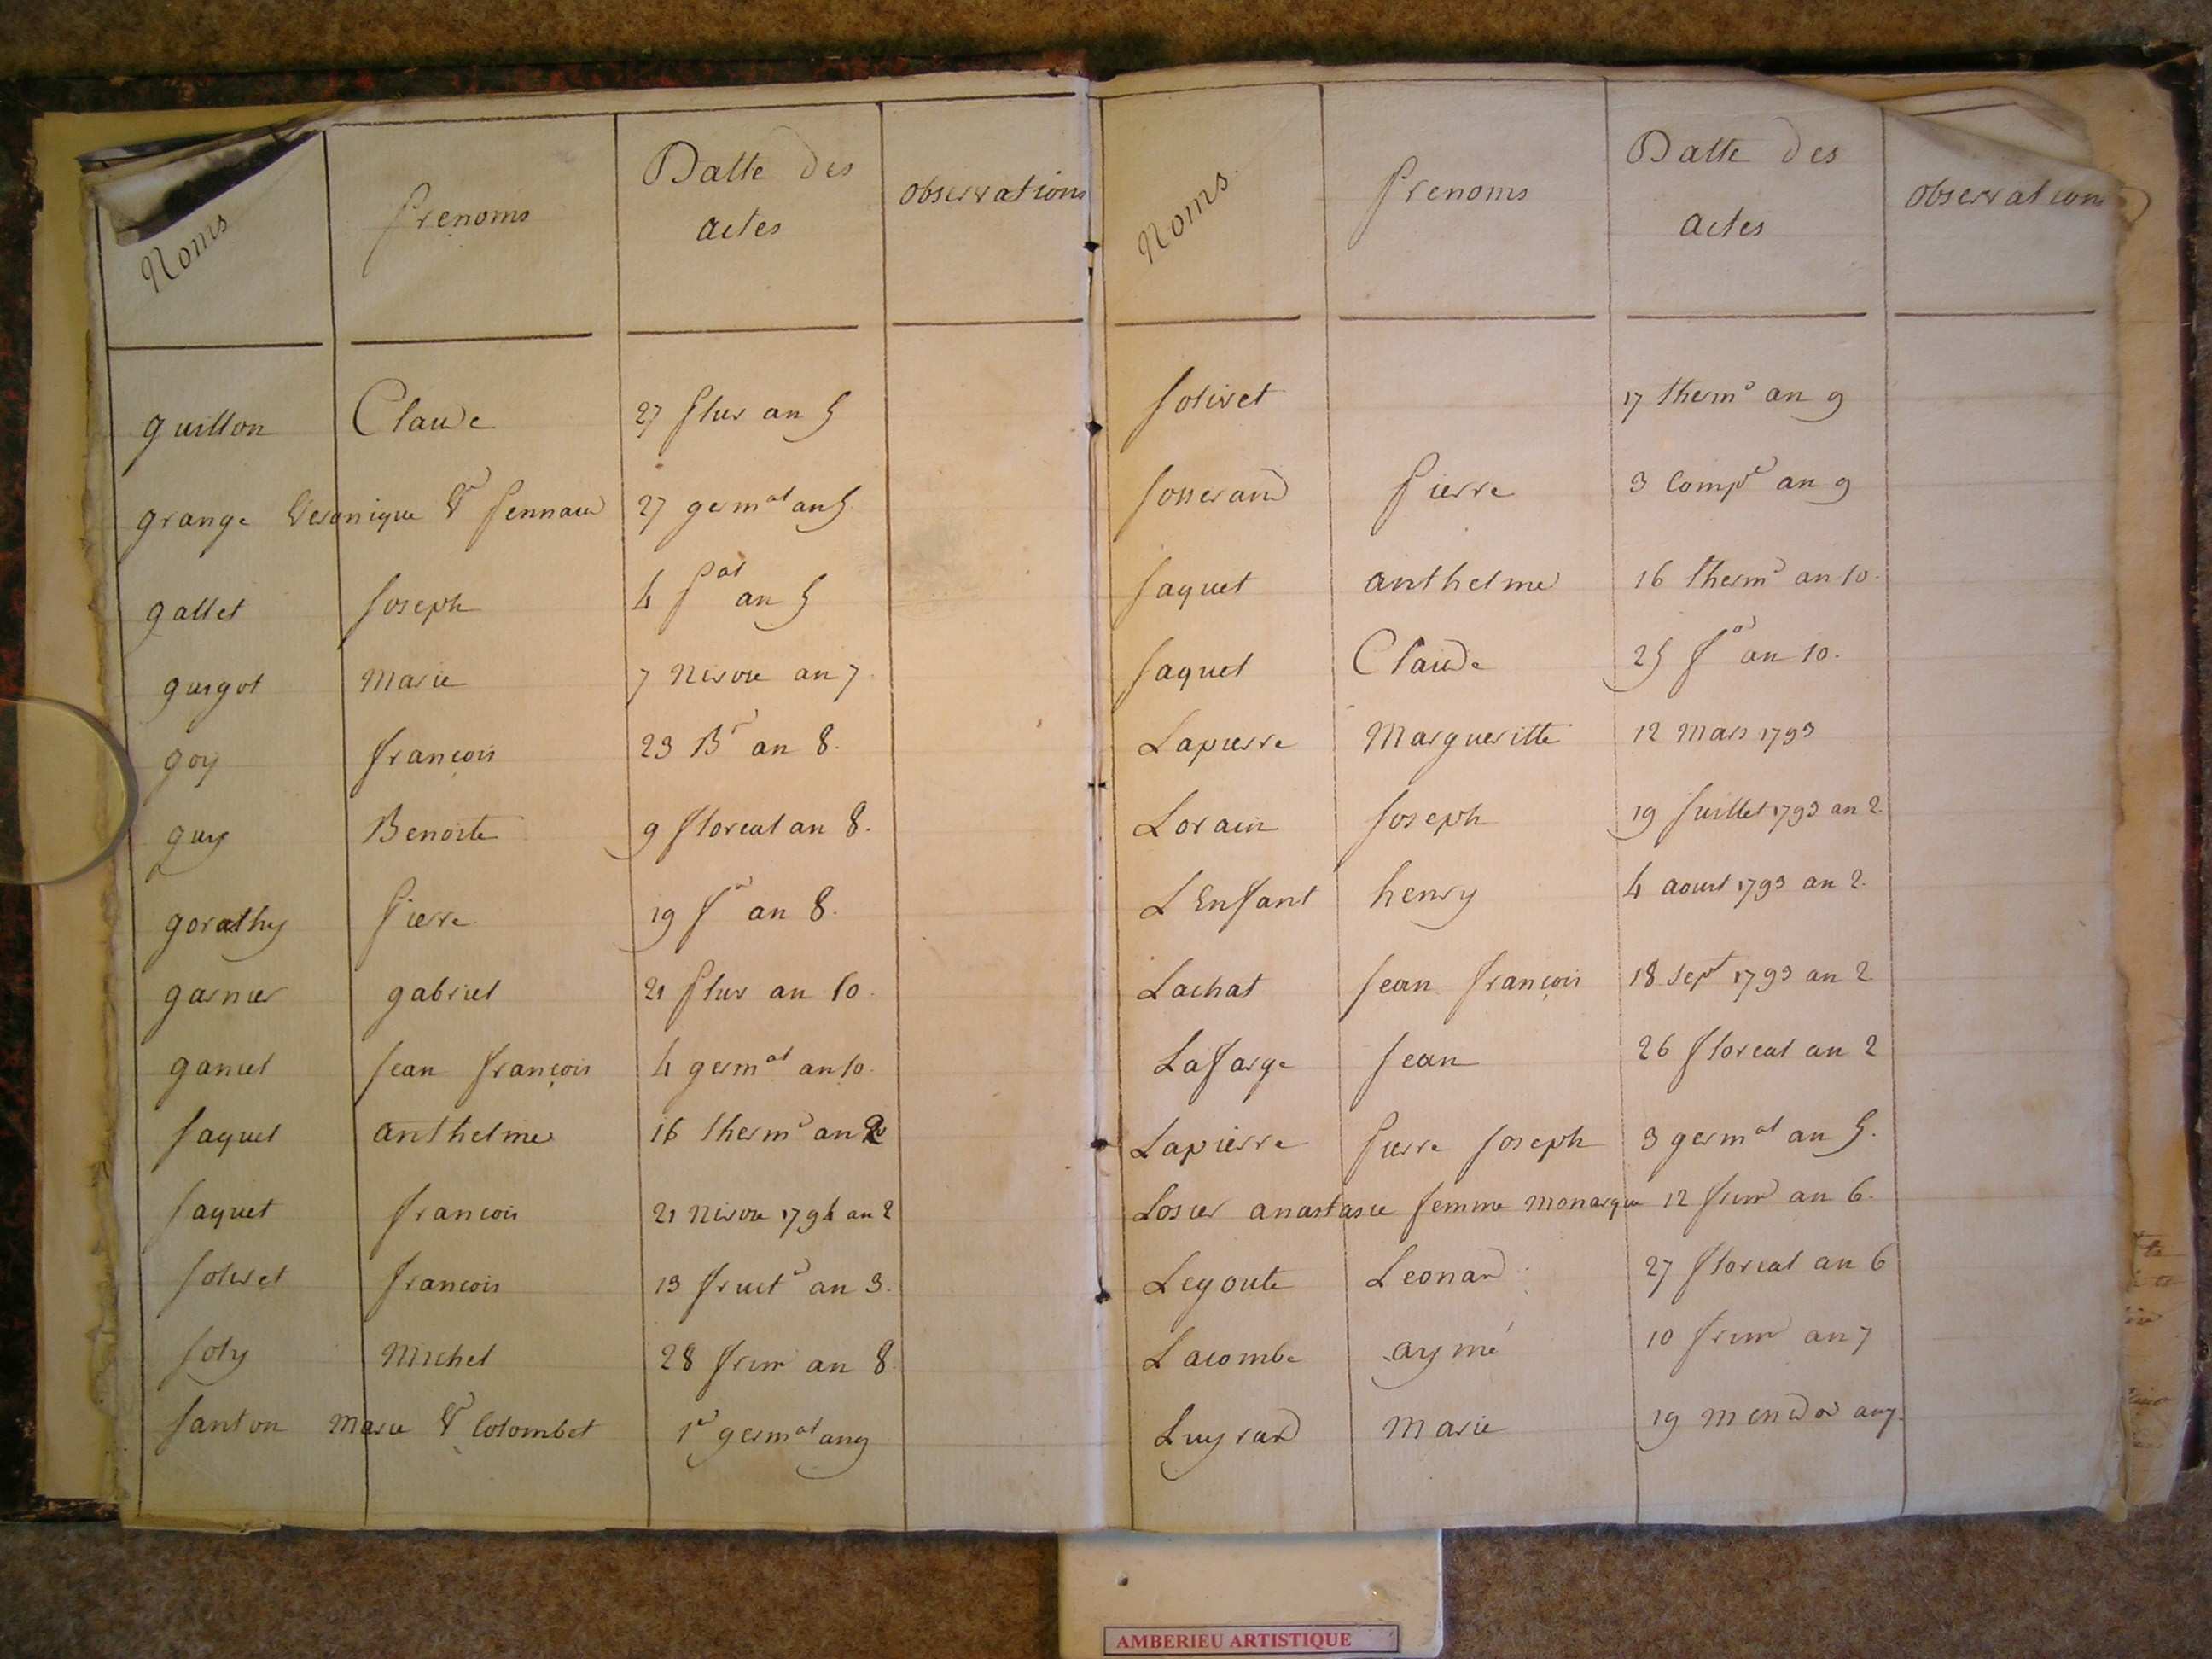 Noms Prenoms Datte des actes observations
guillon Claude 27 pluv an 5
grange Veronique Ve Pennaud 27 germal an 5
gallet Joseph 4 pal an 5
guigot Marie 7 Nivose an 7
goy françois 23 Br an 8.
guy Benoite 9 floreal an 8.
gorathy Pierre 19 fr an 8.
garnier gabriel 21 pluv an 10.
gancel Jean françois 4 germal an 10.
Jaquet anthelme 16 thermr an 2
Jaquet françois 21 Nivose 1794 an 2
Jolivet françois 13 fructr an 3.
Joly Michel 28 frim an 8
Janton Marie Ve Colombet 1er germal an 9
Noms Prenoms Datte des actes observations
Jolivet 17 thermr an 9
Josserand Pierre 3 Compre an 9
Jaquet anthelme 16 thermr an 10.
Jaquet Claude 25 fr an 10.
Lapierre Margueritte 12 Mars 1793
Lorain Joseph 19 Juillet 1793 an 2.
L Enfant henry 4 aoust 1793 an 2.
Lachat Jean françois 18 sept 1793 an 2
Lafarge Jean 26 floreal an 2
Lapierre Pierre Joseph 3 germal an 5.
Losier anastasie femme monarque 12 frimr an 6.
Legoute Leonard 27 floreal an 6
Lacombe aymé 10 frimr an 7
Luyrard Marie 19 Messidor an 7.
AMBERIEU ARTISTIQUE